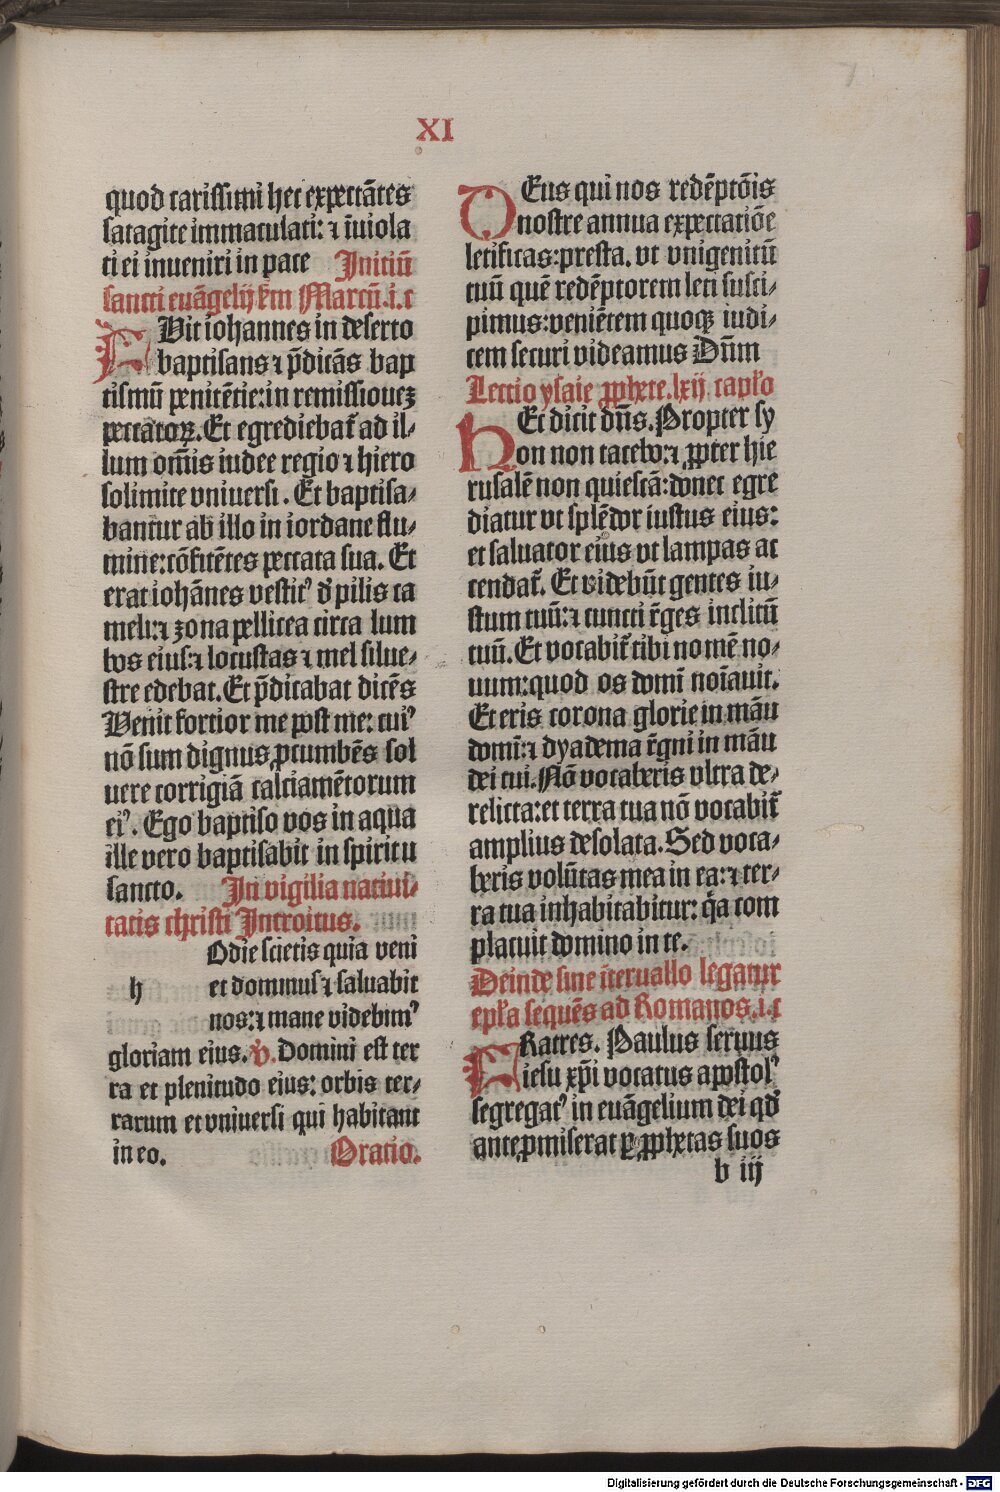 XI
quod carissimi hec expectātes
satagite immaculati: ⁊ īuiola
ti ei inueniri in pace Initiū
sancti euāgelij scd̄m Marcū .i. c
FVit iohannes in deserto
baptisans ⁊ p̄dicās bap
tismū penitētie: in remissionez
peccatoꝝ. Et egrediebat̄ ad il⸗
lum om̄is iudee regio ⁊ hiero
solimite vniuersi. Et baptisa⸗
bantur ab illo in iordane flu⸗
mine: cōfitētes peccata sua. Et
erat iohānes vestitꝰ d̓ pilis ca
meli: ⁊ zona pellicea circa lum
bos eius: ⁊ locustas ⁊ mel silue⸗
stre edebat. Et p̄dicabat dicēs
Venit fortior me post me: cuiꝰ
nō sum dignus ꝓcumbēs sol
uere corrigiā calciamētorum
eiꝰ. Ego baptiso vos in aqua
ille vero baptisabit in spiritu
sancto. In vigilia natiui⸗
tatis christi Introitus.
h Odie scietis quia veni
et dominus ⁊ saluabit
nos: ⁊ mane videbimꝰ
gloriam eius. ℣. Domini est ter
ra et plenitudo eius: orbis ter⸗
rarum et vniuersi qui habitant
in eo. Oratio.
DEus qui nos redēptōis
nostre annua expectatiōe
letificas: presta. vt vnigenitū
tuū quē redēptorem leti susci⸗
pimus: veniētem quoqꝫ iudi⸗
cem securi videamus Dn̄m
Lectio ysaie ꝓphete. lxij capło
HEc dicit dn̄s. Propter sy
on non tacebo: ⁊ ꝓpter hie
rusalē non quiescā: donec egre
diatur vt splēdor iustus eius:
et saluator eius vt lampas ac
cendat̄. Et videbūt gentes iu⸗
stum tuū: ⁊ cuncti r̄ges inclitū
tuū. Et vocabit̄ tibi nomē no⸗
uum: quod os domī noīauit.
Et eris corona glorie in māu
domī: ⁊ dyadema r̄gni in māu
dei tui. Nō vocaberis vltra de⸗
relicta: et terra tua nō vocabit̄
amplius desolata. Sed voca⸗
beris volūtas mea in ea: ⁊ ter⸗
ra tua inhabitabitur: q̄a com
placuit domino in te.
Deinde sine īteruallo legatur
epła sequēs ad Romanos. i. c
FRatres. Paulus seruus
iesu xp̄i vocatus apostolꝰ
segregatꝰ in euāgelium dei qd̓
ante ꝓmiserat ꝑ ꝓphetas suos
b iij
Digitalisierung gefördert durch die Deutsche Forschungsgemeinschaft - DFG